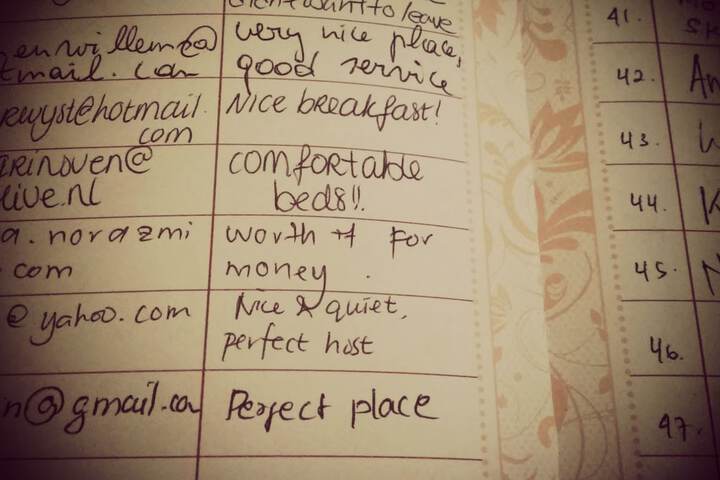 didn't want to leave
enwillem@
tmail.com
very nice place,
good service
ewyst@hotmail.
com
Nice breakfast!
arinoven@
live.nl
comfortable
beds!!
a.norazmi
com
worth it for
money.
@yahoo.com
Nice & quiet,
perfect host
n@gmail.com
Perfect place
41.
42.
43.
44.
45.
46.
47.